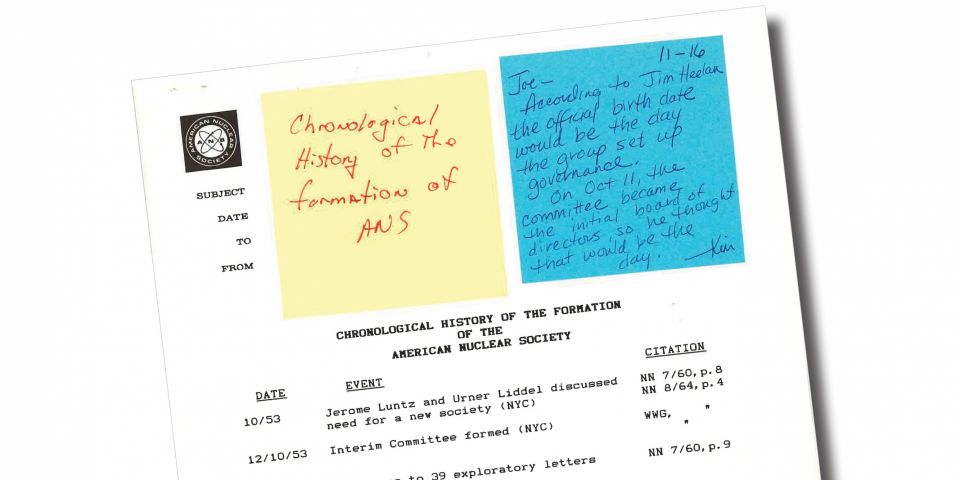 AMERICAN NUCLEAR SOCIETY
ANS
SUBJECT
DATE
TO
FROM
Chronological
History of the
formation of
ANS
11-16
Joe-
According to Jim Heelan
the official birth date
would be the day
the group set up
governance.
On Oct 11, the
committee became
the initial board of
directors so he thought
that would be the
day. —Kim
CHRONOLOGICAL HISTORY OF THE FORMATION
OF THE
AMERICAN NUCLEAR SOCIETY
DATE EVENT CITATION
10/53 Jerome Luntz and Urner Liddel discussed NN 7/60, p.8
need for a new society (NYC) NN 8/64, p.4
12/10/53 Interim Committee formed (NYC) WWG, "
"
to 39 exploratory letters NN 7/60, p.9